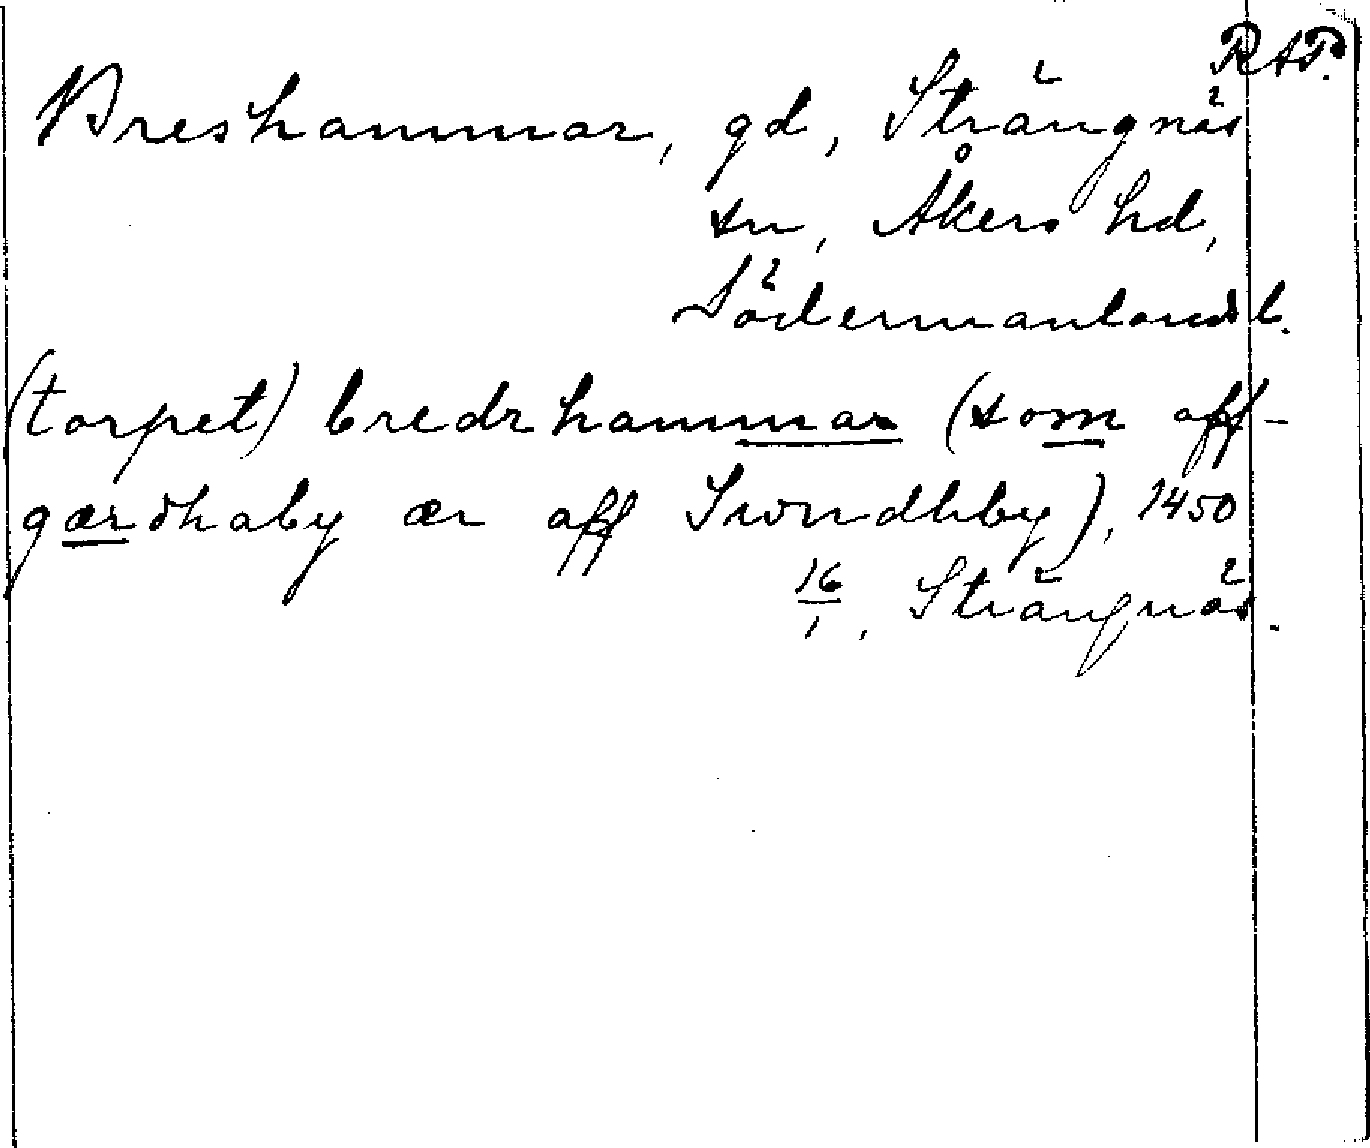 RAP.
Breshammar, gd, Strängnäs
sn, Åkers hd,
Södermanlands l.
(torpet) bredzhammar (som aff-
gærdhaby ær aff Swndhby), 1450
16/1, Strängnäs.